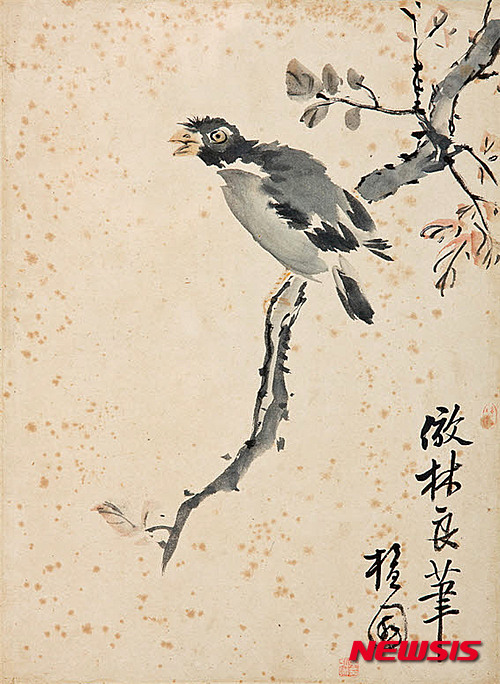 倣林良筆
檀園
NEWSIS